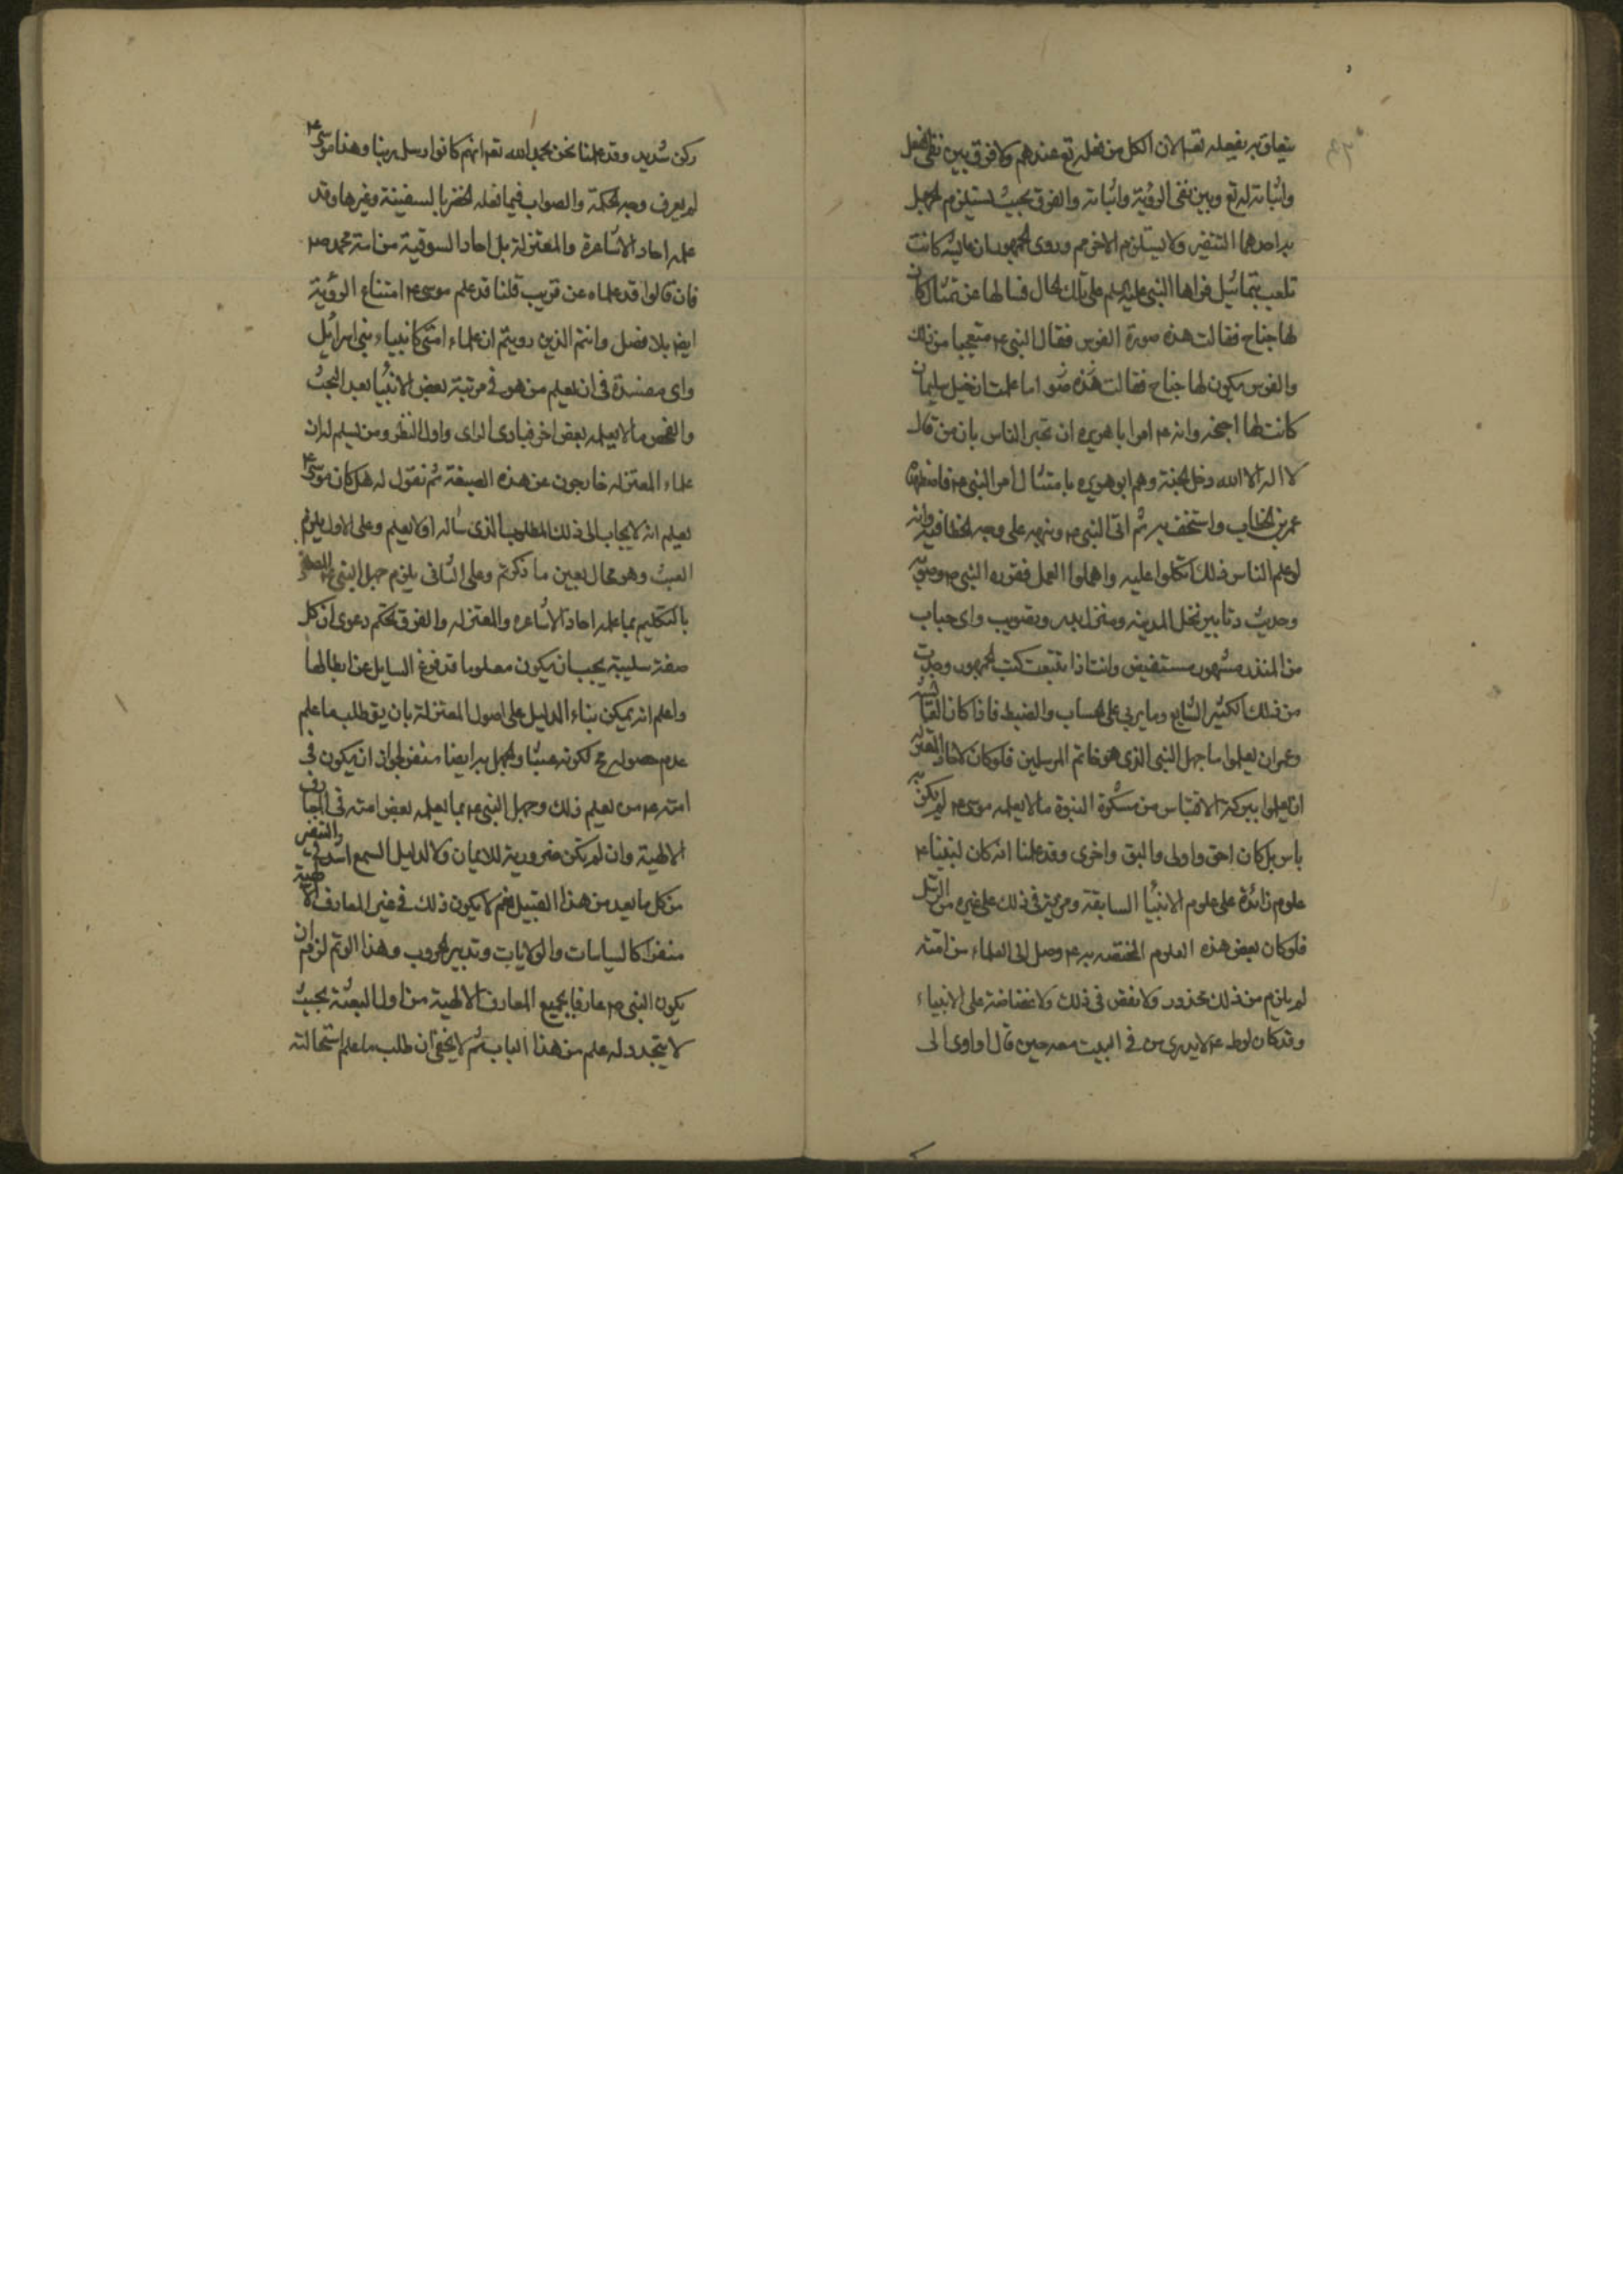 يتعلق به بفعله تعه لان الكل من فعله تع عندهم ولا فرق بين نفي الفعل
واثباته له تع وبين نفى الرؤية واثباته والفرق بحيث يستلزم الجهل
باحدهما التنفير ولا يستلزم الاخر وروى الجمهور ان عايشه كانت
تلعب بتماثيل فراها النبى عليه السلم على تلك الحال فسالها عن تمثال كان
لها جناح فقالت هذه صورة الفرس فقال النبى متعجبا من ذلك
والفرس يكون لها جناح فقالت اما علمت ان خيل سليمان
كانت لها اجنحه وانه امر ابا هريره ان يخبر الناس بان من قال
لا اله الا الله دخل الجنة وهم ابو هريره بامتثال امر النبى
عمر بن الخطاب واستخف به ثم اتى النبى ونبهه على وجه الخطا فيه وانه
لو علم الناس ذلك اتكلوا عليه واهملوا العمل فقرره النبى وصوبه
وحديث تابير نخل المدينه ومنزل بدر وتصويب راى حباب
بن المنذر مشهور مستفيض وانت اذا تتبعت كتب الجمهور وجدت
من ذلك الكثير الشايع وما يربى على الحساب والضبط فاذا كان لعايشه
وعمر ان يعلموا ما جهل النبى الذى هو خاتم المرسلين فلو كان لاحاد المعتزله
ان يعلموا ببركة الاقتباس من مشكوة النبوة ما لا يعلمه موسى لم يكن به
باس بل كان احق واولى واليق واحرى وقد علمنا انه كان لنبينا
علوم زائدة على علوم الانبيا السابقة ومزية فى ذلك على غيره من الرسل
فلو كان بعض هذه العلوم المختصه به وصل الى العلماء من امته
لم يلزم من ذلك محذور ولا نقص فى ذلك ولا غضاضة على الانبياء
وقد كان لوط لا يدرى من فى البيت معه حين قال او اوى الى
ركن شديد وقد علمنا نحن بحمد الله تعه انهم كانوا رسل ربنا وهذا موسى
لم يعرف وجه الحكمة والصواب فيما فعله الخضر بالسفينة وغيرها وقد
علمه احاد الاشاعرة والمعتزلة بل احاد السوقية من امة محمد
فان قالوا قد علماه عن قريب قلنا قد علم موسى امتناع الرؤية
ايضا بلا فصل وانتم الذين رويتم ان علماء امتى كانبياء بنى اسرائيل
واى مفسدة فى ان يعلم من هو فى مرتبة بعض الانبيا بعد البحث
والفحص ما لا يعلمه بعض اخر فى بادى الراى واول النظر ومن يسلم له ان
علماء المعتزله خارجون عن هذه الصيغة ثم نقول له هل كان موسى
يعلم انه لا يجاب الى ذلك المطلوب الذى ساله او لا يعلم وعلى الاول يلزم
العبث وهو محال بعين ما ذكرتم وعلى الثانى يلزم جهل النبى المصطفى
بالتكليم بما علمه احاد الاشاعره والمعتزله والفرق تحكم دعوى ان كل
صفة سلبية يجب ان يكون معلوما قد فرغ السايل عن ابطالها
واعلم انه يمكن بناء الدليل على اصول المعتزلة بان يق طلب ما علم
عدم حصوله مح لكونه عبثا والجهل به ايضا منفر لجواز ان يكون فى
امته من يعلم ذلك وجهل النبى بما يعلمه بعض امته فى المعارف
الالهية وان لم يكن ضرورية للايمان ولا لدليل السمع اشد فى التنفير
من كل ما يعد من هذا القبيل نعم لا يكون ذلك فى غير المعارف الالهية
منفرا كالسياسات والولايات وتدبير الحروب وهذا لو تم لزم ان
يكون النبى عارفا بجميع المعارف الالهية من اول البعثة بحيث
لا يتجدد له علم من هذا الباب ثم لا يخفى ان طلب ما علم استحالته